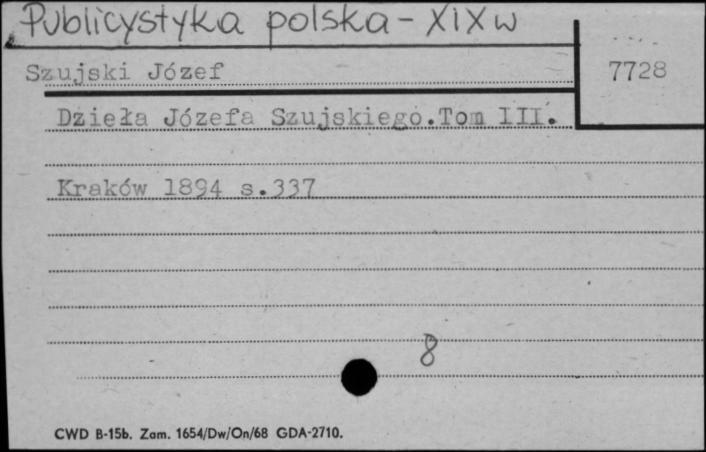 Publicystyka polska - XIX w
Szujski Józef
7728
Dzieła Józefa Szujskiego.Tom III.
Kraków 1894 s.337
8
CWD B-15b. Zam. 1654/Dw/On/68 GDA-2710.